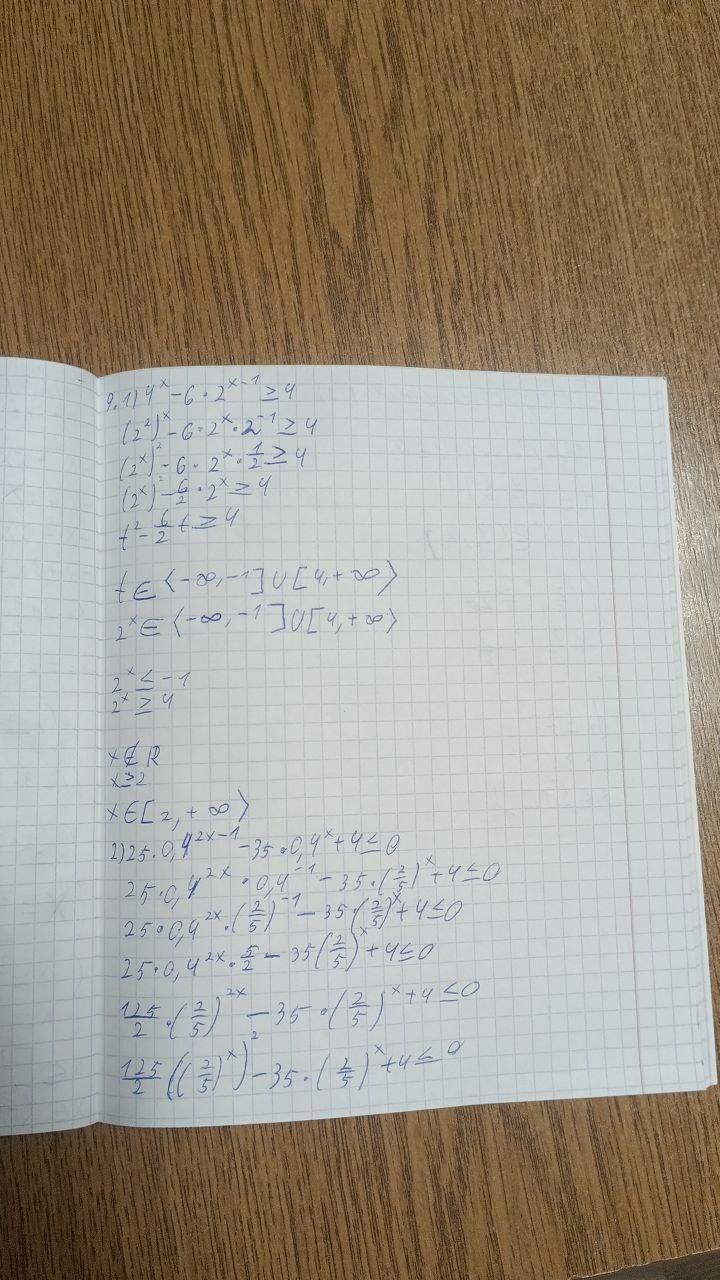 9.1) 4^x - 6 · 2^{x-1} ≥ 4
(2²)^x - 6 · 2^x · 2^{-1} ≥ 4
(2^x)² - 6 · 2^x · 1/2 ≥ 4
(2^x)² - 6/2 · 2^x ≥ 4
t² - 6/2 t ≥ 4
t ∈ ⟨-∞, -1] ∪ [4, +∞⟩
2^x ∈ ⟨-∞, -1] ∪ [4, +∞⟩
2^x ≤ -1
2^x ≥ 4
x ∉ R
x ≥ 2
x ∈ [2, +∞⟩
2) 25 · 0,4^{2x-1} - 35 · 0,4^x + 4 ≤ 0
25 · 0,4^{2x} · 0,4^{-1} - 35 · (2/5)^x + 4 ≤ 0
25 · 0,4^{2x} · (2/5)^{-1} - 35 · (2/5)^x + 4 ≤ 0
25 · 0,4^{2x} · 5/2 - 35 (2/5)^x + 4 ≤ 0
125/2 · (2/5)^{2x} - 35 · (2/5)^x + 4 ≤ 0
125/2 ((2/5)^x)² - 35 · (2/5)^x + 4 ≤ 0